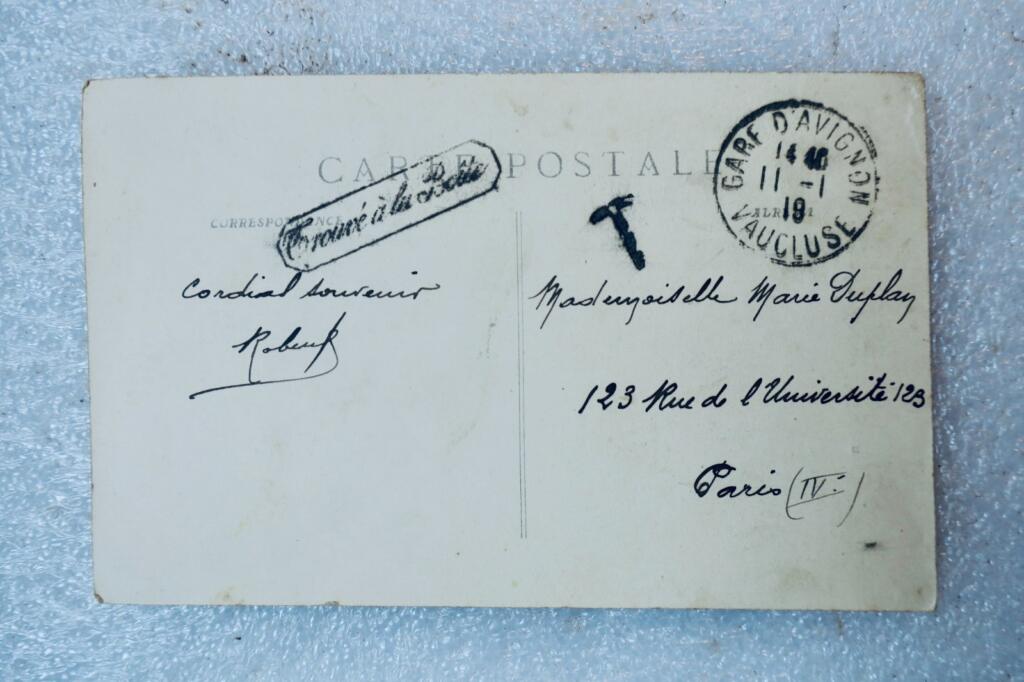 CARTE POSTALE
CORRESPONDANCE
Trouvé à la Boîte
T
GARE D'AVIGNON
14 40
11 -1
19
VAUCLUSE
Cordial souvenir
Mademoiselle Marie Duplay
123 Rue de l'Université 123
Paris (IV.)